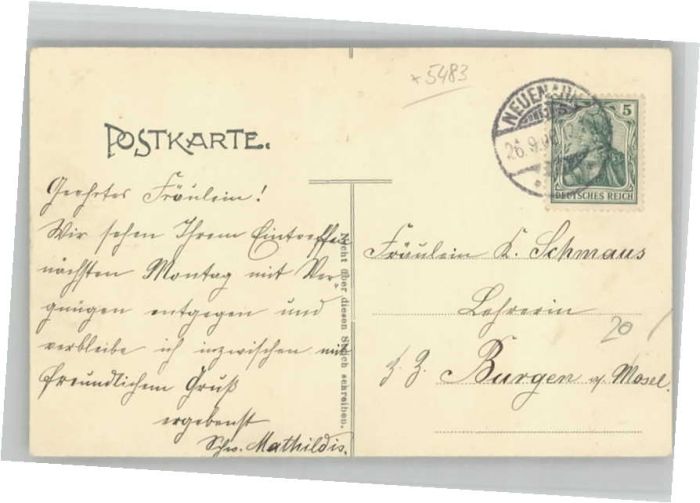 +5483
NEUENAHR
26.9.
5
5
DEUTSCHES REICH
POSTKARTE.
Geehrtes Fräulein!
Wir sehen Ihrem Eintreffen
nächsten Montag mit Ver-
gnügen entgegen und
verbleibe ich inzwischen mit
freundlichem Gruß
ergebenst
Schw. Mathildis.
Nicht über diesen Strich schreiben.
Fräulein K. Schmaus
Lehrerin
20
z. Z. Burgen a/ Mosel.